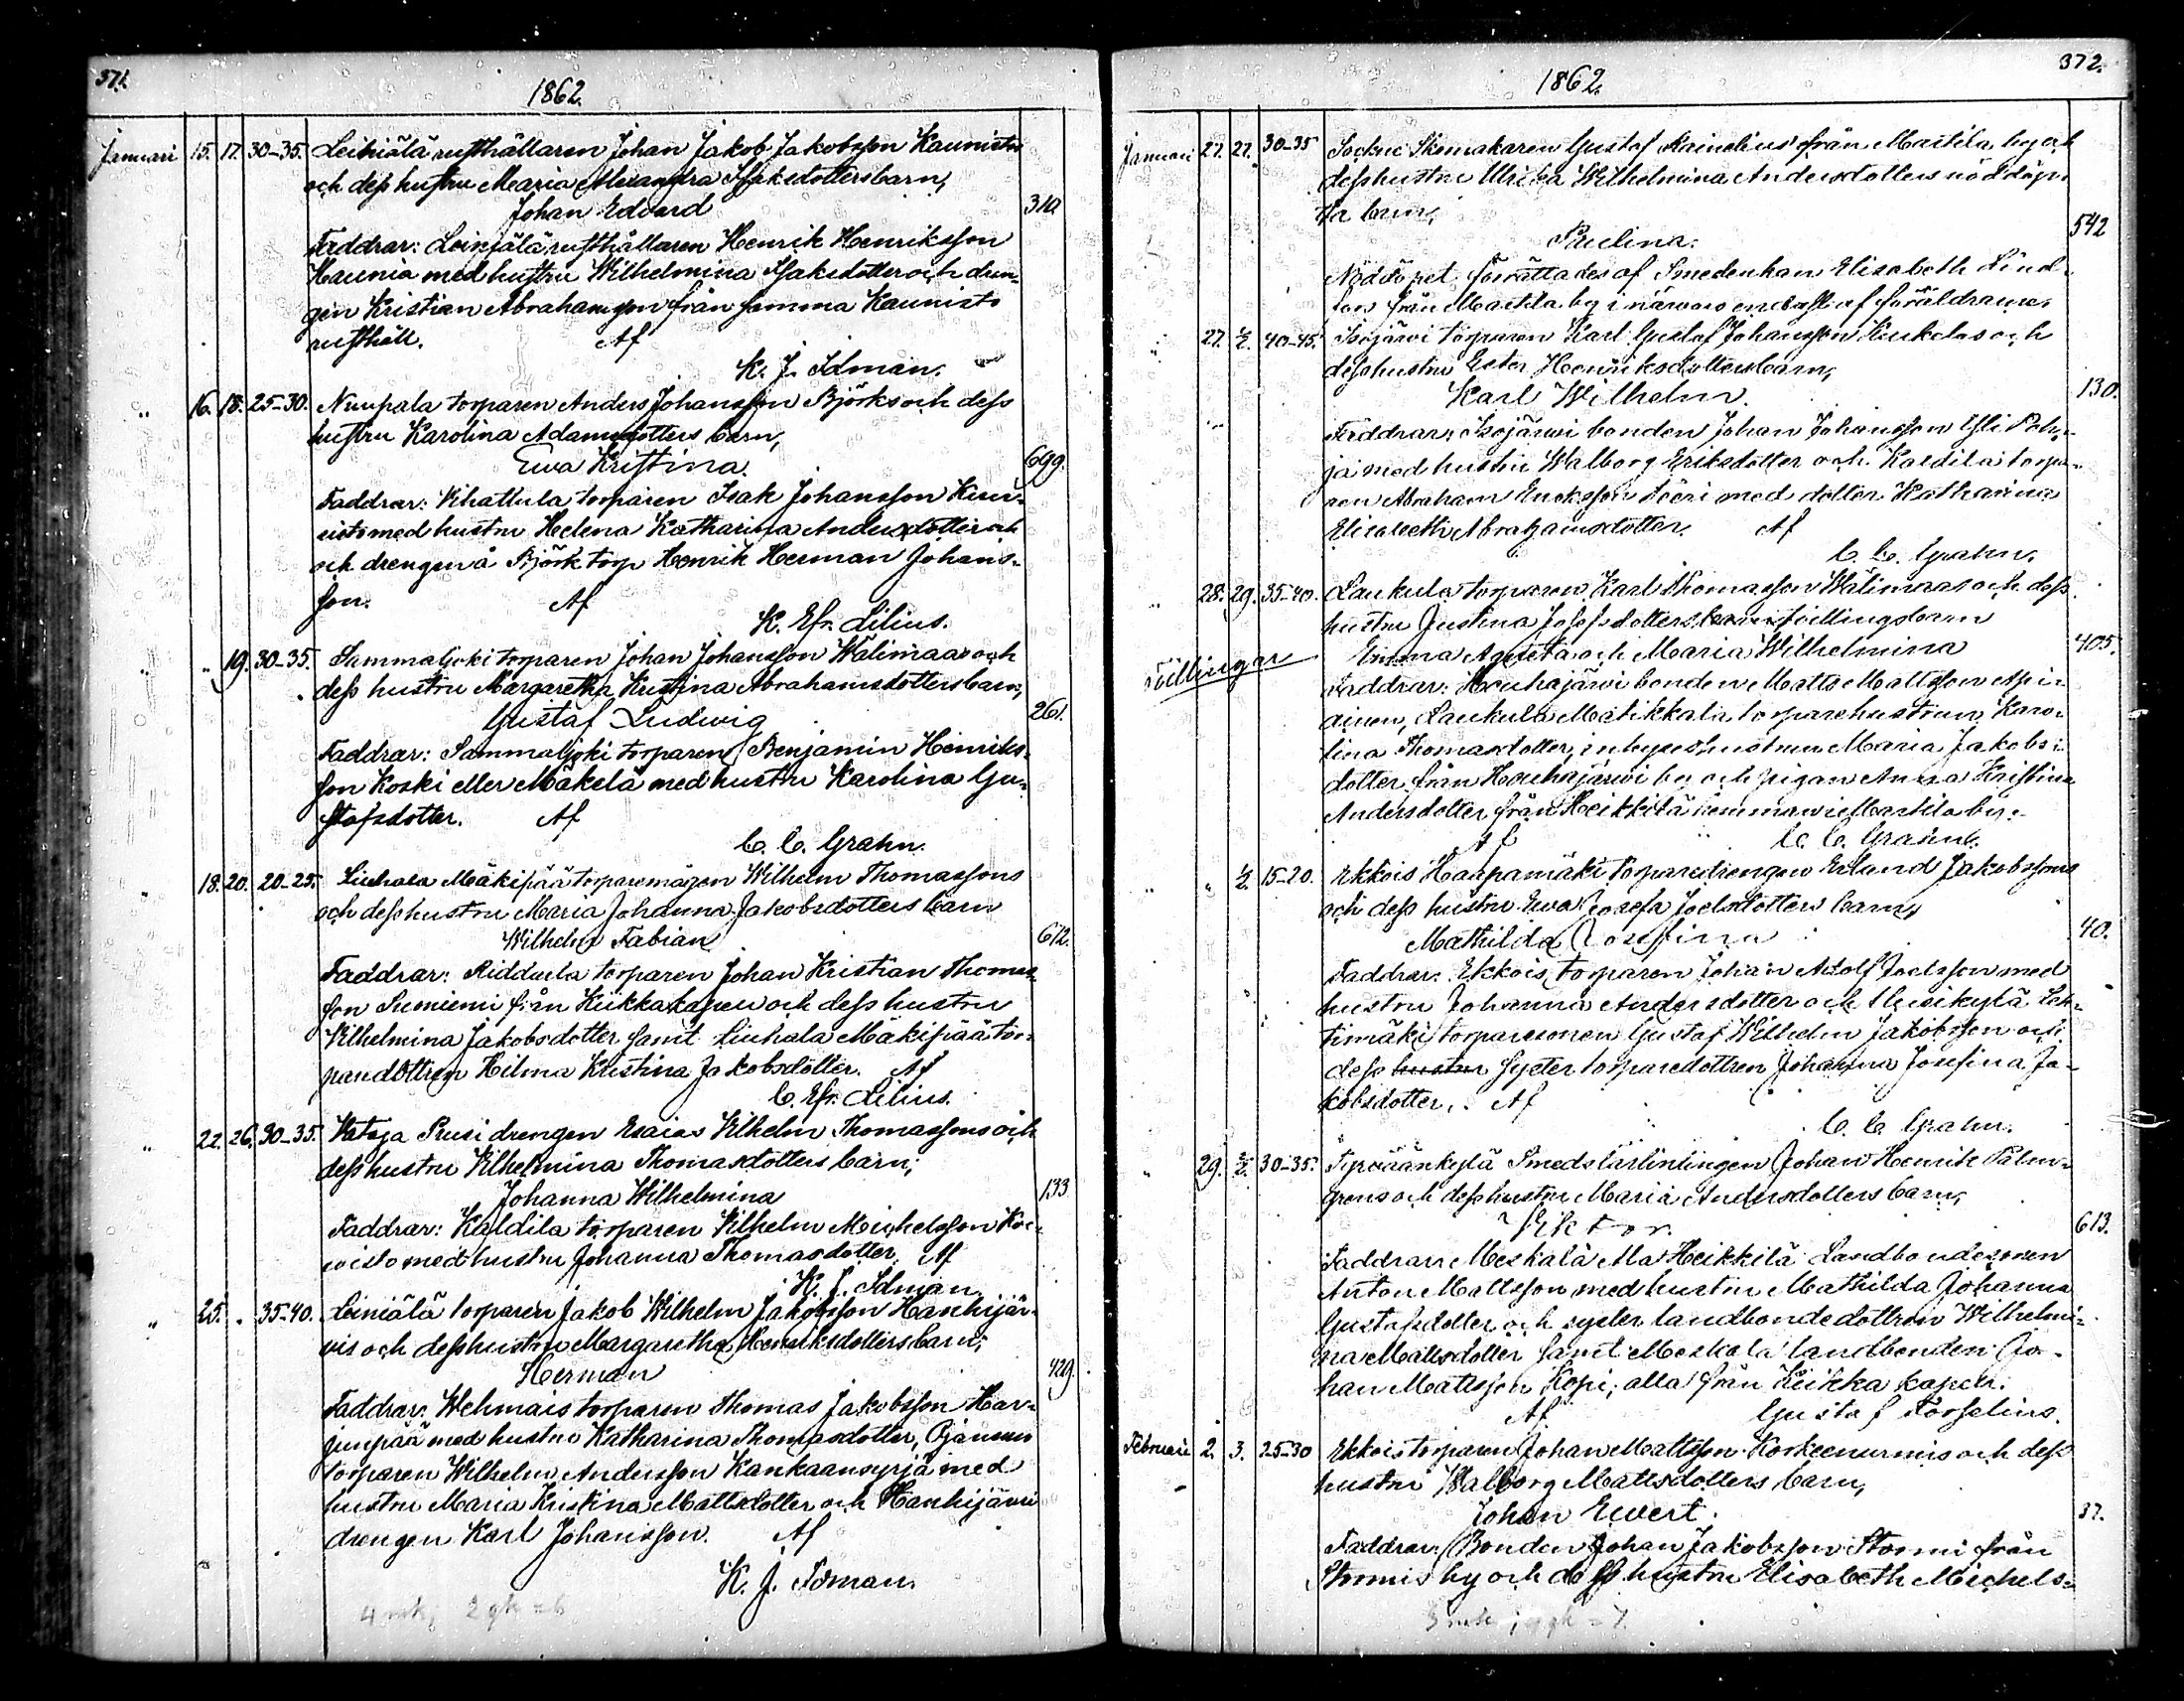 371.
1862.
Januari 15. 17. 30-35. Leiniälä rusthållaren Johan Jakob Jakobsson Kaunisto
och dess hustru Maria Alexandra Isaksdotters barn,
Johan Edvard 310
Faddrar: Leiniälä rusthållaren Henrik Henriksson
Kaunia med hustru Wilhelmina Isaksdotter och dren-
gen Kristian Abrahamsson från samma Kaunisto
rusthåll. Af
K. J. Idman.
" 16. 18. 25-30. Nuupala torparen Anders Johansson Björks och dess
hustru Karolina Adamsdotters barn,
Ewa Kristina. 699.
Faddrar: Vihattula torparen Isak Johansson Kuu-
isto med hustru Helena Katharina Andersdotter och
och drengen å Björk torp Henrik Herman Johans-
son. Af
K. Efr. Lilius.
" " 19. 30-35. Sammaljoki torparen Johan Johansson Walimaas och
dess hustru Margaretha Kristina Abrahamsdotters barn,
Gustaf Ludwig 261.
Faddrar: Sammaljoki torparen Benjamin Henriks-
son Koski eller Mäkelä med hustru Karolina Gu-
stafsdotter. Af
C. C. Grahn.
" 18. 20. 20-25. Liuhala Mäkipää torparemågen Wilhelm Thomassons
och dess hustru Maria Johanna Jakobsdotters barn
Wilhelm Fabian 612.
Faddrar: torparen Johan Kristian Thomas-
son Suniemi från Kiikka kapell och dess hustru
Vilhelmina Jakobsdotter samt Liuhala Mäkipää tor-
paredottren Hilma Kristina Jakobsdotter. Af
C. Efr. Lilius.
" 22. 26. 30-35. Kataja Prusi drengen Esaias Vilhelm Thomassons och
dess hustru Vilhelmina Thomasdotters barn;
Johanna Wilhelmina 133
Faddrar: Kaldila torparen Vilhelm Michelsson Ko-
visto med hustru Johanna Thomasdotter. Af
K. J. Idman.
" 25. " 35-40. Leiniälä torparen Jakob Wilhelm Jakobsson Hanhijär-
vis och dess hustru Margaretha Henriksdotters barn;
Herman 429.
Faddrar: Wehmais torparen Thomas Jakobsson Har-
junpää med hustru Katharina Thomasdotter,
torparen Wilhelm Andersson Kankaansyrjä med
hustru Maria Kristina Mattsdotter och Hanhijärvi
drengen Karl Johansson. Af
K. J. Idman.
372.
1862.
Januari 27. 27. 30-35 Sockne Skomakaren Gustaf Rainelius från Maitila by och
dess hustru Ulrika Wilhelmina Andersdotters nöddöp-
ta barn,
Paulina. 542
Nöddopet förrättades af Smedenkan Elisabeth Lind-
fors från by i närvaro endast af föräldrarne.
" 27. 1/2. 40-45. Isojärvi torparen Karl Gustaf Johansson Kiukelas och
dess hustru Ester Henriksdotters barn,
Karl Wilhelm. 130.
Faddrar: Isojärvi bonden Johan Johansson Yli Poh-
ja med hustru Walborg Eriksdotter och Kaldila torpa-
ren Abraham med dotter Katharina
Elisabeth Abrahamsdotter. Af
C. C. Grahn.
" 28. 29. 35-40. Laukula torparen Karl Thomasson Wälimaas och dess
hustru Justina Josefsdotters tvillingsbarn
Tvillingar Emma Agneta och Maria Wilhelmina 405.
Faddrar: Houhajärvi bonden Matts Mattsson
Laukula Matikkala torparehustrun Karo-
lina Thomasdotter, inhyseshustrun Maria Jakobs-
dotter från Houhajärvi by och pigan Anna Kristina
Andersdotter från Heikkilä hemman i by.
Af C. C. Grahn.
" " 1/2. 15-20. Ekkois Haapamäki torparedrengen Erland Jakobssons
och dess hustru Ewa Josefa Joelsdotters barn,
Mathilda Josefina 40.
Faddrar: Ekkois torparen Johan Adolf Joelsson med
hustru Johanna Andersdotter och Lah-
timäki torparesonen Gustaf Wilhelm Jakobsson och
dess hustru syster torparedottren Johanna Josefina Ja-
kobsdotter. Af
C. C. Grahn.
" 29. 2/2. 30-35. Tyrväänkylä Smedslärlinlingen Johan Henrik Palm-
grens och dess hustru Maria Andersdotters barn,
Viktor. 613.
Faddrar: Meskala Ala Heikkilä Landbondesonen
Anton Mattsson med hustru Mathilda Johanna
Gustafsdotter och syster landbondedottren Wilhelmi-
na Mattsdotter samt Meskala landbonden Jo-
han Mattsson Kopi, alla från Kiikka kapell.
Af Gustaf Forselius.
Februari 2. 3. 25-30 Ekkois torparen Johan Mattsson Korkeenurmis och dess
hustru Walborg Mattsdotters barn,
Johan Evert. 37.
Faddrar: Bonden Johan Jakobsson Stormi från
Stormis by och dess hustru Elisabeth Michels-